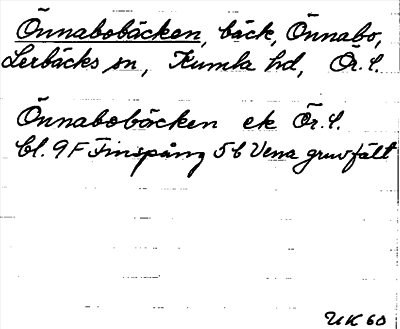 Önnabobäcken, bäck, Önnabo,
Lerbäcks sn, Kumla hd, Ör. l.
Önnabobäcken ek Ör. l.
bl. 9F Finspång 5b Vena gruvfält
UK 60